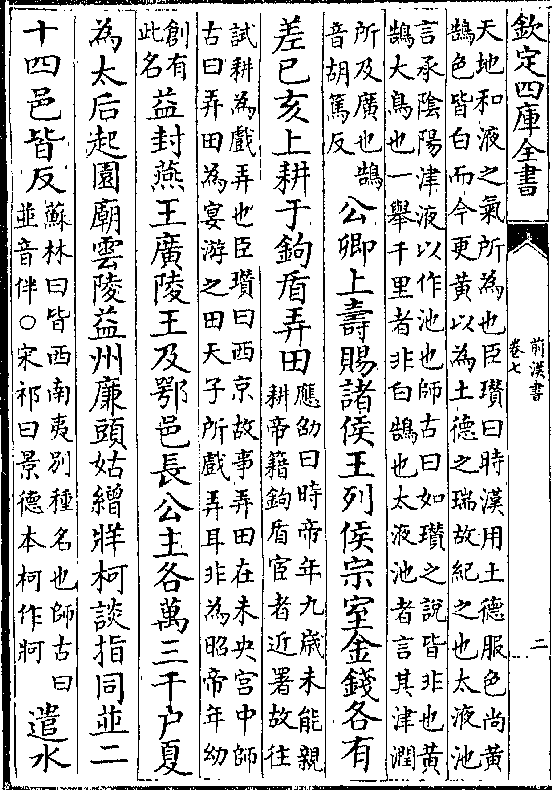 欽定四庫全書
前漢書
卷七
二
天地和液之氣所為也臣瓚曰時漢用土德服色尚黃
鵠色皆白而今更黃以為土德之瑞故紀之也太液池
言承陰陽津液以作池也師古曰如瓚之說皆非也黃
鵠大鳥也一舉千里者非白鵠也太液池者言其津潤
所及廣也鵠
音胡篤反
公卿上壽賜諸侯王列侯宗室金錢各有
差已亥上耕于鉤盾弄田
應劭曰時帝年九歲未能親
耕帝籍鉤盾宦者近署故往
試耕為戲弄也臣瓚曰西京故事弄田在未央宮中師
古曰弄田為宴游之田天子所戲弄耳非為昭帝年幼
創有
此名
益封燕王廣陵王及鄂邑長公主各萬三千户夏
為太后起園廟雲陵益州廉頭姑繒牂柯談指同並二
十四邑皆反
蘇林曰皆西南夷别種名也師古曰
並音伴○宋祁曰景德本柯作牁
遣水